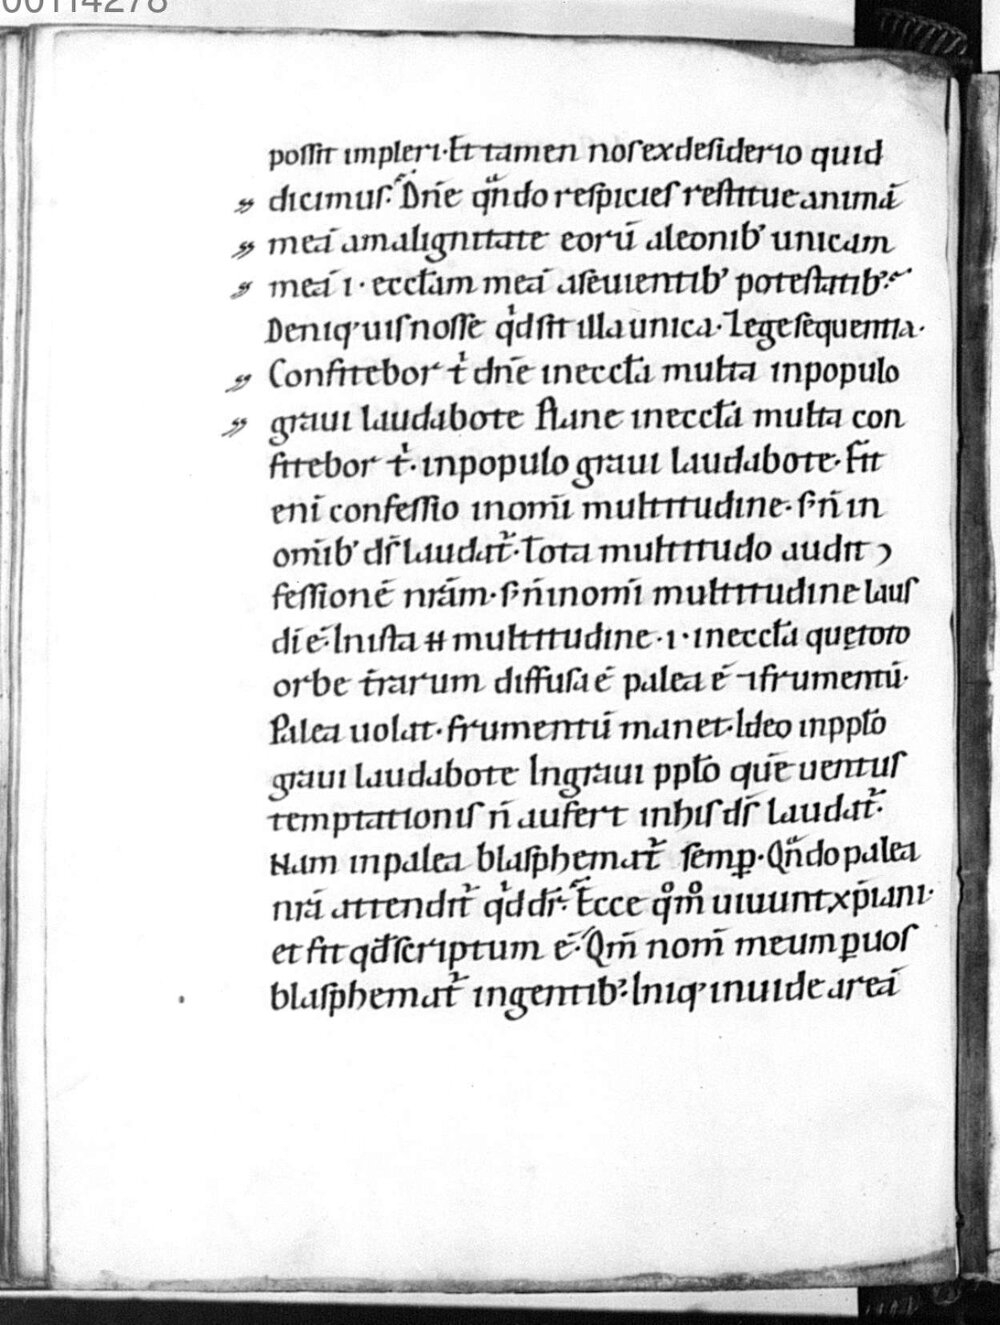 00114278
possit impleri· Et tamen nos ex desiderio quid
dicimus· Dñe qͣndo respicies restitue animā
meā a malignitate eorū a leonibꝰ unicam
meā ·i· eccłam meā a seuientibꝰ potestatibꝰ·
Deniqꝰ uis nosse qͥd sit illa unica· Lege sequentia·
Confitebor tͥ dñe in eccła multa in populo
graui laudabo te Plane in eccła multa con
fitebor tͥ· in populo graui laudabo te· Fit̄
eni confessio in om̄i multitudine· sꝫ ñ in
om̄ibꝰ ds̄ laudat᷑· Tota multitudo audit ꝯ
fessionē nrām· sꝫ ñ in om̄i multitudine laus
dī ē· In ista ħ multitudine ·i· in eccła quę toto
orbe t̄rarum diffusa ē palea ē ⁊ frumentū·
Palea uolat· frumentū manet· Ideo in ppło
graui laudabo te In graui ppło quē uentus
temptationis ñ aufert in his ds̄ laudat᷑·
Nam in palea blasphemat᷑ semꝑ· Qͣñdo palea
nrā attendit᷑ qͥd dr̄· Ecce qͦmͦ uiuunt xp̄iani·
et fit qđ scriptum ē· Qm̄ nom̄ meum ꝑ uos
blasphemat᷑ in gentibꝰ· Iniqꝰ inuide areā